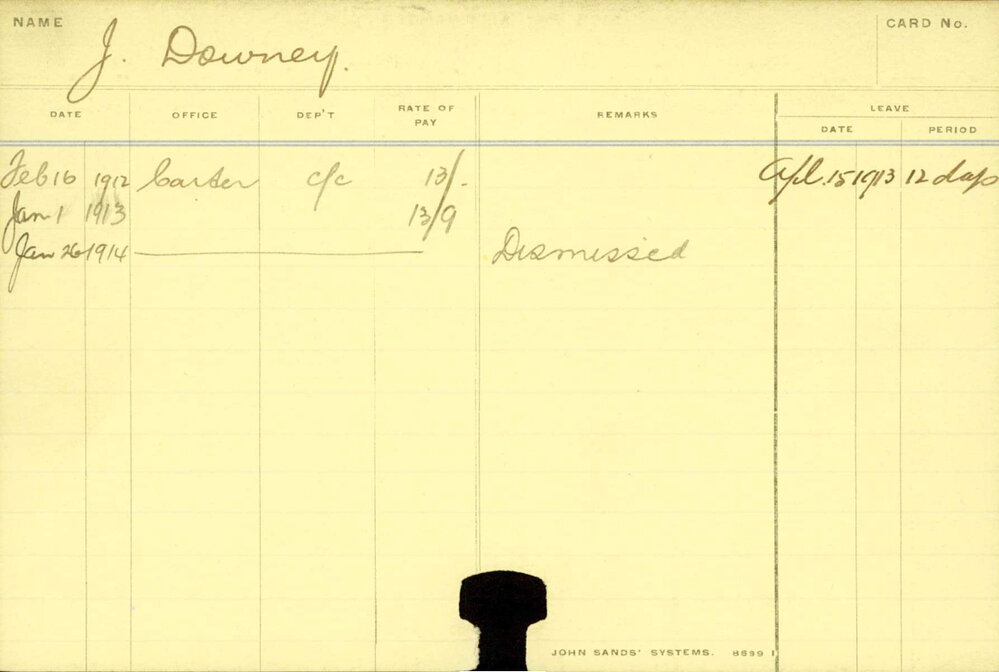 NAME CARD No.
J. Downey.
DATE OFFICE DEP'T RATE OF PAY REMARKS LEAVE
DATE PERIOD
Feb 16 1912 Carter c/c 13/- Apl. 15 1913 12 days
Jan 1 1913 13/9
Jan 26 1914 Dismissed
JOHN SANDS' SYSTEMS. 8699 1